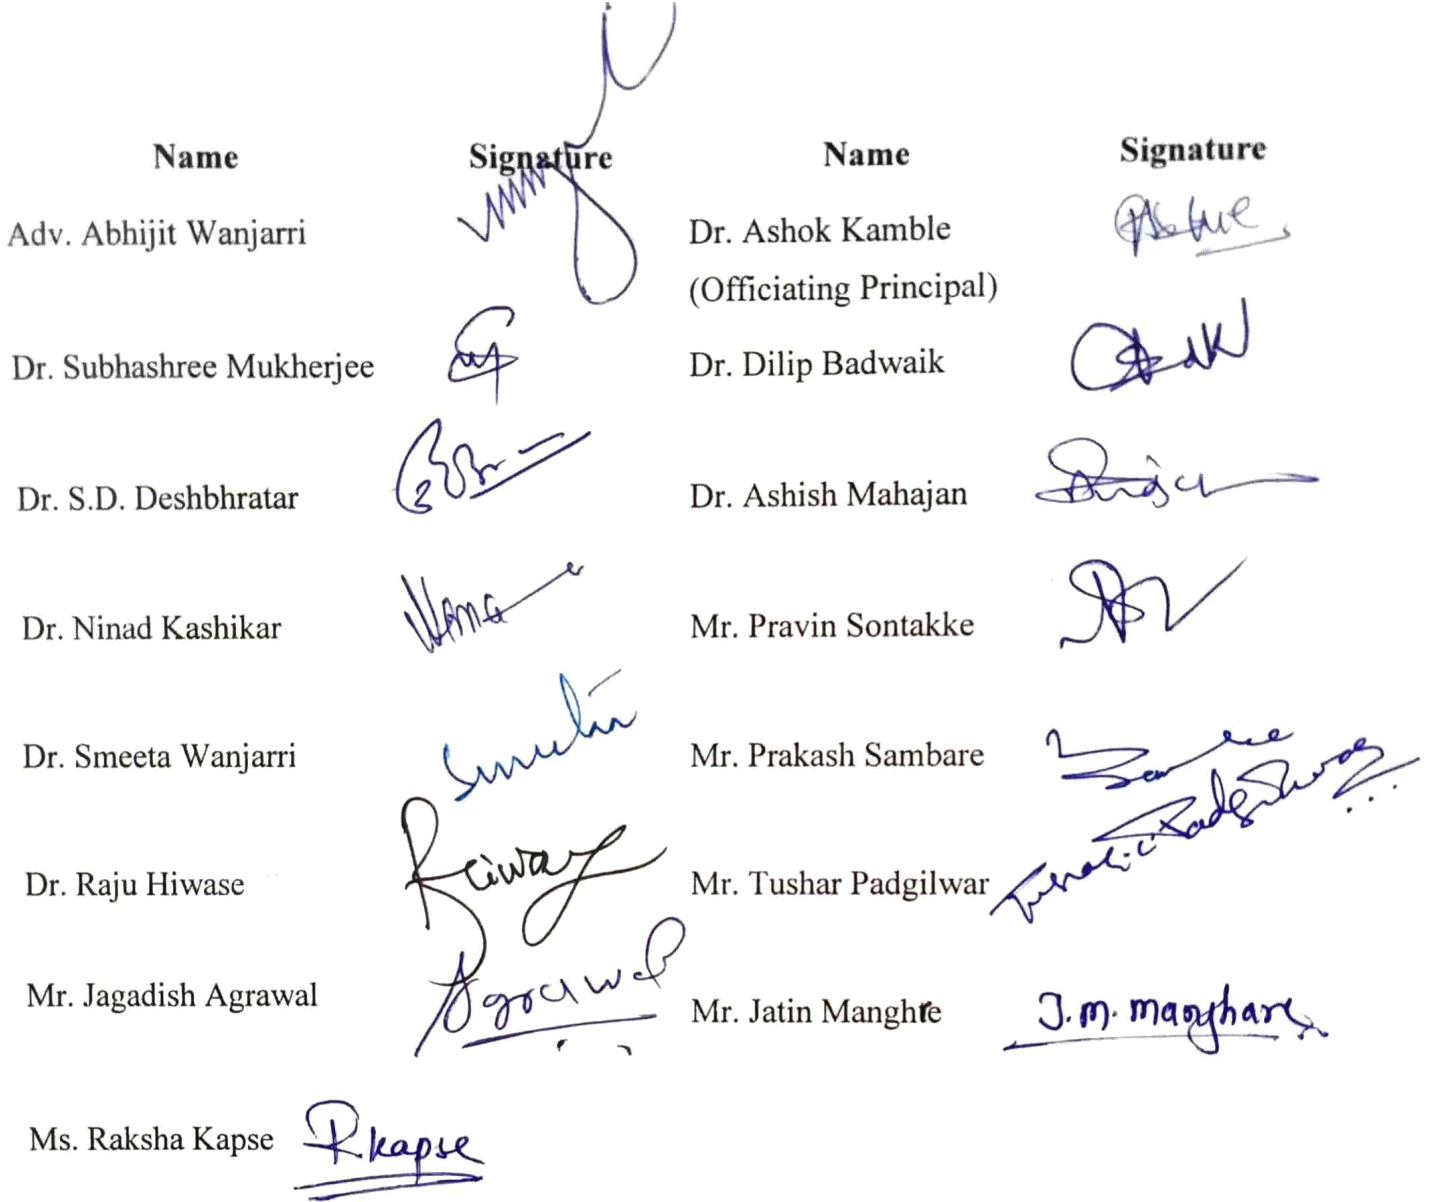 Name Signature Name Signature
Adv. Abhijit Wanjarri Dr. Ashok Kamble
(Officiating Principal)
Dr. Subhashree Mukherjee Dr. Dilip Badwaik
Dr. S.D. Deshbhratar Dr. Ashish Mahajan
Dr. Ninad Kashikar Mr. Pravin Sontakke
Dr. Smeeta Wanjarri Mr. Prakash Sambare
Dr. Raju Hiwase Mr. Tushar Padgilwar
Mr. Jagadish Agrawal Agrawal Mr. Jatin Manghre J.M. Manghare
Ms. Raksha Kapse R kapse